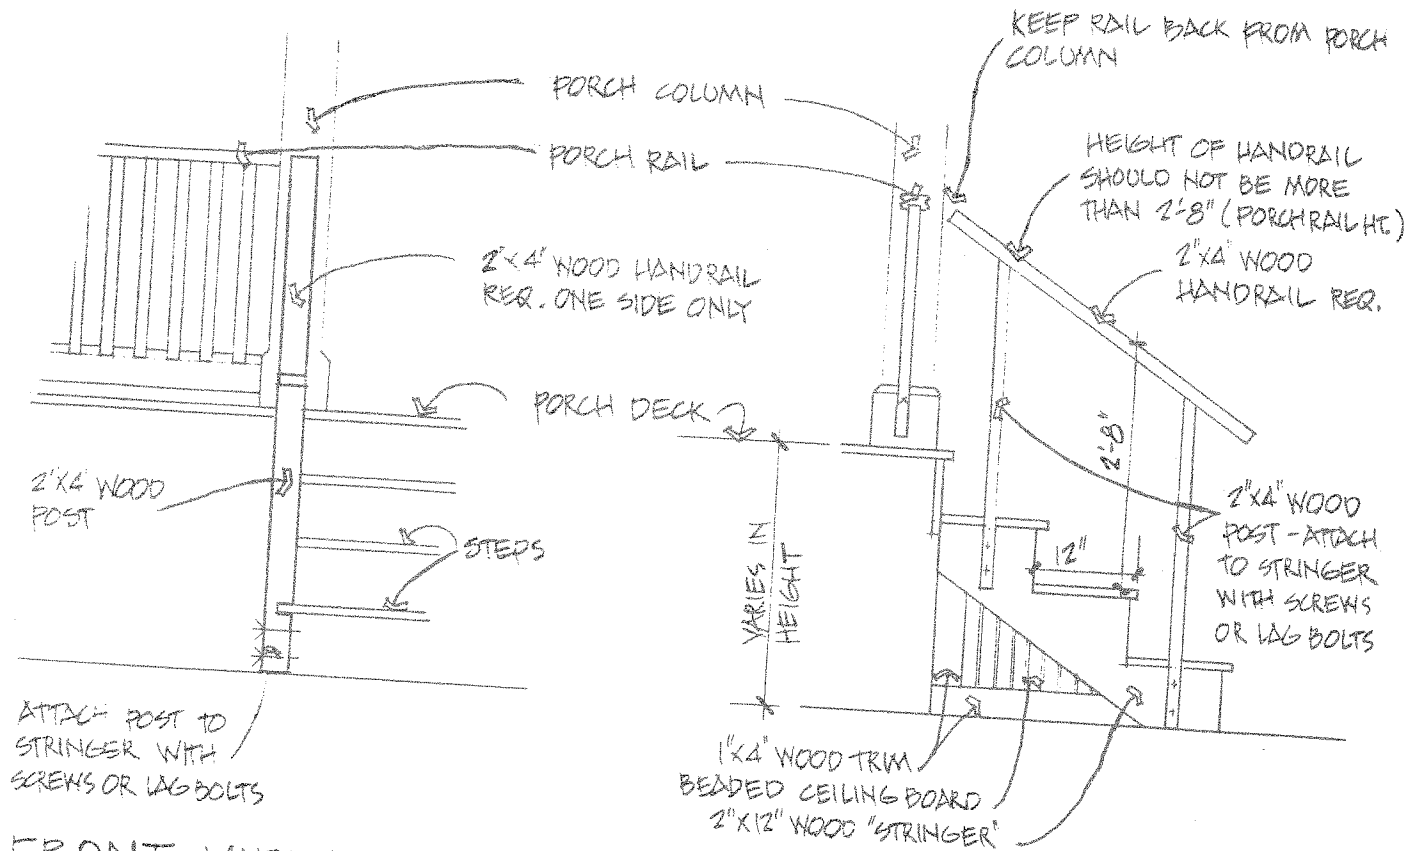 KEEP RAIL BACK FROM PORCH
COLUMN
PORCH COLUMN
PORCH RAIL
HEIGHT OF HANDRAIL
SHOULD NOT BE MORE
THAN 2'-8" (PORCH RAIL HT.)
2"X4" WOOD
HANDRAIL REQ.
2"X4" WOOD HANDRAIL
REQ. ONE SIDE ONLY
PORCH DECK
2'-8"
2"X4" WOOD
POST
STEPS
VARIES IN
HEIGHT
12"
2"X4" WOOD
POST - ATTACH
TO STRINGER
WITH SCREWS
OR LAG BOLTS
ATTACH POST TO
STRINGER WITH
SCREWS OR LAG BOLTS
1"X4" WOOD TRIM
BEADED CEILING BOARD
2"X12" WOOD "STRINGER"
FRONT